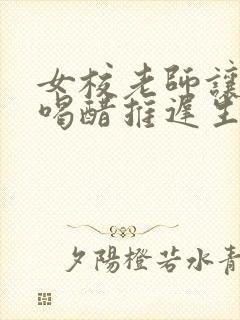 女校老師讓
喝醋推遲生
夕陽橙若水青